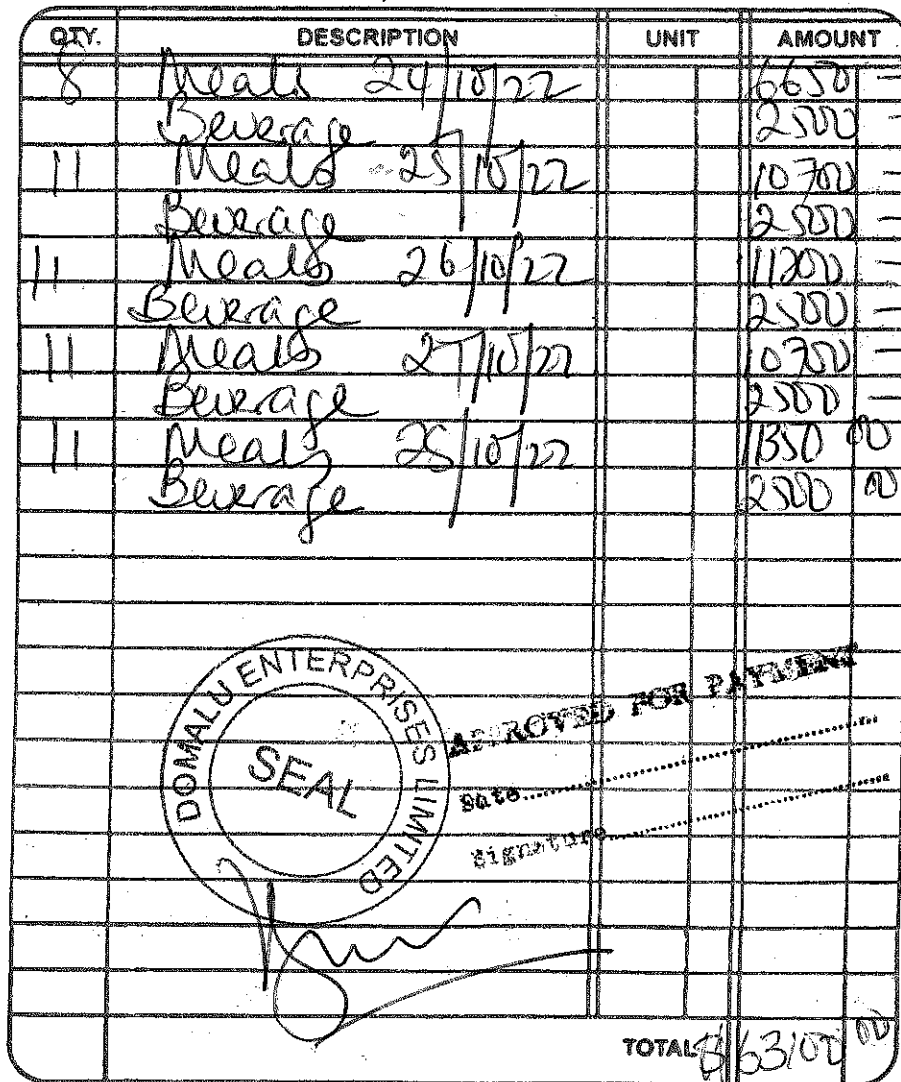 QTY. DESCRIPTION UNIT AMOUNT
8 Meals 24/10/22 6650 -
Beverage 2500 -
11 Meals 25/10/22 10700 -
Beverage 2500 -
11 Meals 26/10/22 11200 -
Beverage 2500 -
11 Meals 27/10/22 10700 -
Beverage 2500 -
11 Meals 28/10/22 11350 00
Beverage 2500 00
DOMALU ENTERPRISES LIMITED
SEAL
APPROVED FOR PAYMENT
Date..........
Signature..........
TOTAL $ 63100 00